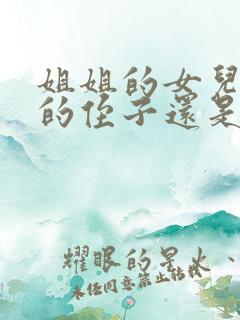 姐姐的女兒
的侄子還是
耀眼的星火、
未经同意禁止转载